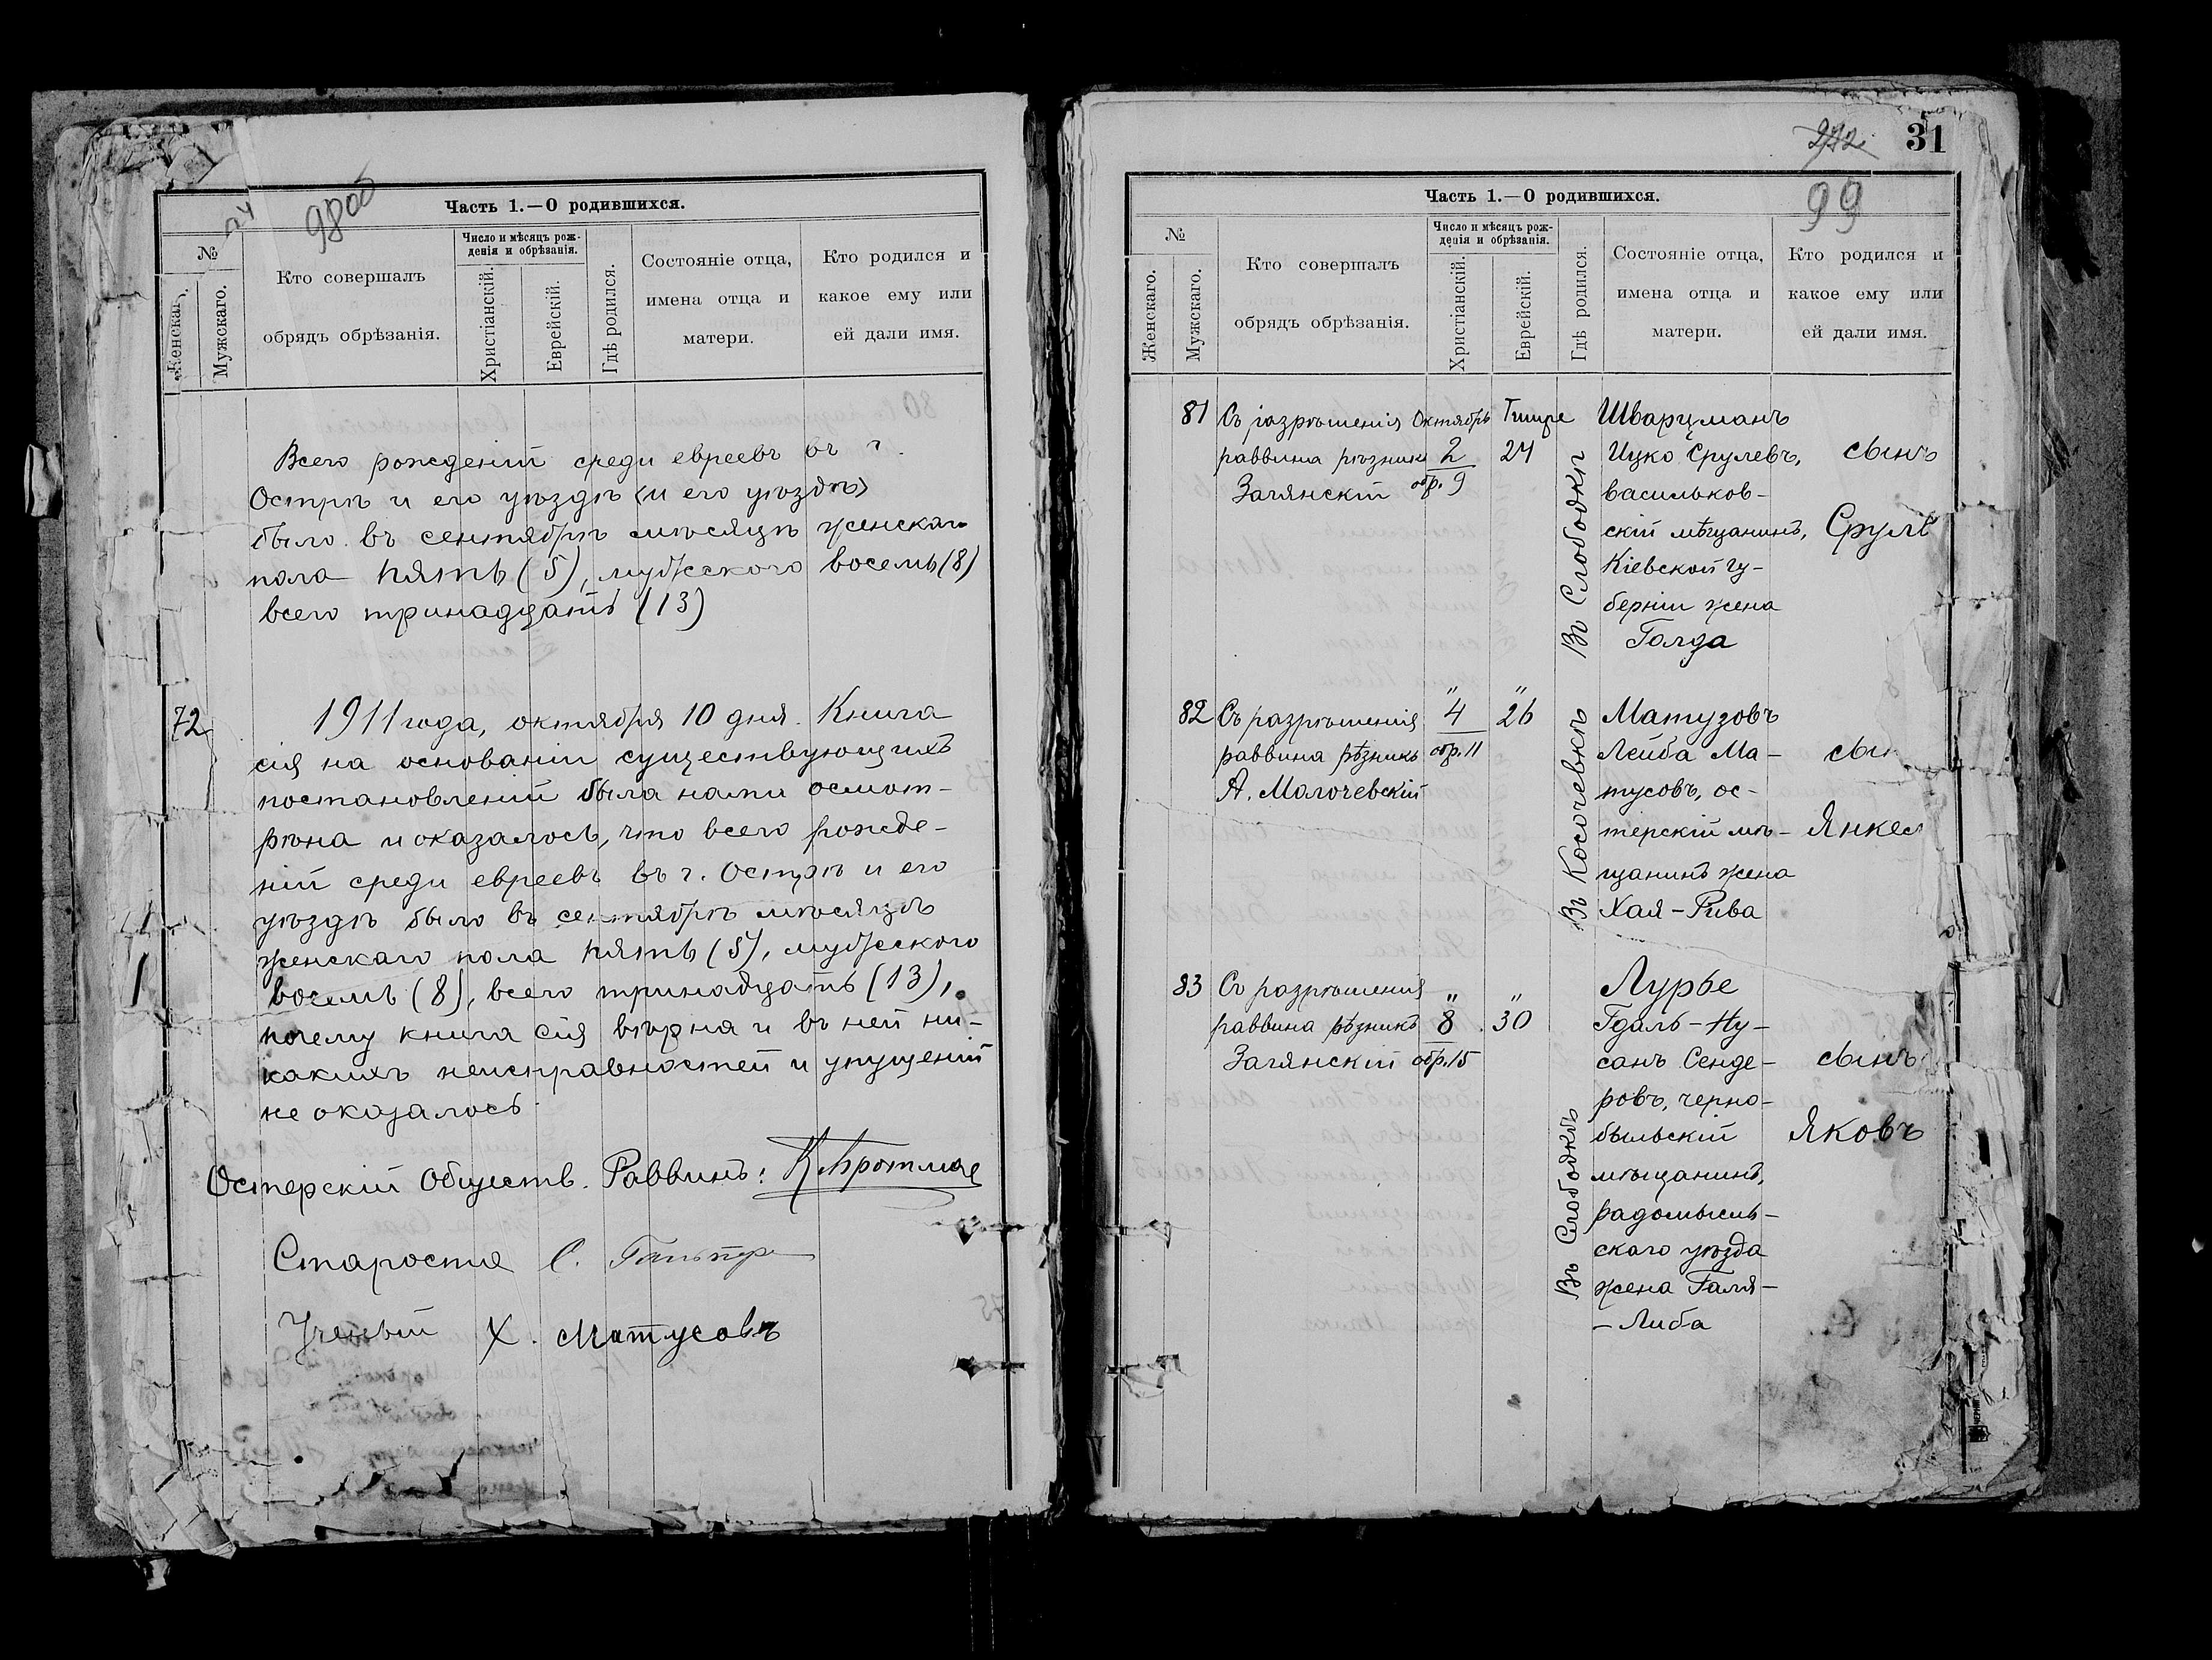 98об
Часть 1.—О родившихся.
№
Женскаго.
Мужскаго.
Кто совершалъ
обрядъ обрѣзанія.
Число и мѣсяцъ рож-
денія и обрѣзанія.
Христіанскій.
Еврейскій.
Гдѣ родился.
Состояніе отца,
имена отца и
матери.
Кто родился и
какое ему или
ей дали имя.
Всего рожденій среди евреевъ въ г.
Острѣ и его уѣздѣ (и его уѣздѣ)
было въ сентябрѣ мѣсяцѣ женскаго
пола пять (5), мужескаго восемь (8)
всего тринадцать (13)
72
1911 года, октября 10 дня. Книга
сія на основаніи существующихъ
постановленій была нами осмот-
рѣна и оказалось, что всего рожде-
ній среди евреевъ въ г. Острѣ и его
уѣздѣ было въ сентябрѣ мѣсяцѣ
женскаго пола пять (5), мужескаго
восемь (8), всего тринадцать (13),
почему книга сія вѣрна и въ ней ни-
какихъ неисправностей и упущеній
не оказалось.
Остерскій Обществ. Раввинъ:
Староста С.
Ученый Х. Матусовъ
272
31
99
Часть 1.—О родившихся.
№
Женскаго.
Мужскаго.
Кто совершалъ
обрядъ обрѣзанія.
Число и мѣсяцъ рож-
денія и обрѣзанія.
Христіанскій.
Еврейскій.
Гдѣ родился.
Состояніе отца,
имена отца и
матери.
Кто родился и
какое ему или
ей дали имя.
81
Съ разрѣшенія
раввина рѣзникъ
Загянскій
Октябрь
2
обр. 9
Тишре
24
Въ Слободкѣ
Шварцманъ
Ицко Срулевъ,
васильков-
скій мѣщанинъ,
Кіевской гу-
берніи жена
Голда
сынъ
Сруль
82
Съ разрѣшенія
раввина рѣзникъ
А. Малочевскій
" 4
обр. 11
" 26
Въ Косочевкѣ
Матузовъ
Лейба Ма-
тусовъ, ос-
терскій мѣ-
щанинъ жена
Хая-Рива
сын
Янкел
83
Съ разрѣшенія
раввина рѣзникъ
Загянскій
" 8
обр. 15
" 30
Въ Слободкѣ
Лурье
Гдаль-Ну-
санъ Сенде-
ровъ, черно-
быльскій
мѣщанинъ,
радомысль-
скаго уѣзда
жена Галя-
-Либа
сынъ
Яковъ